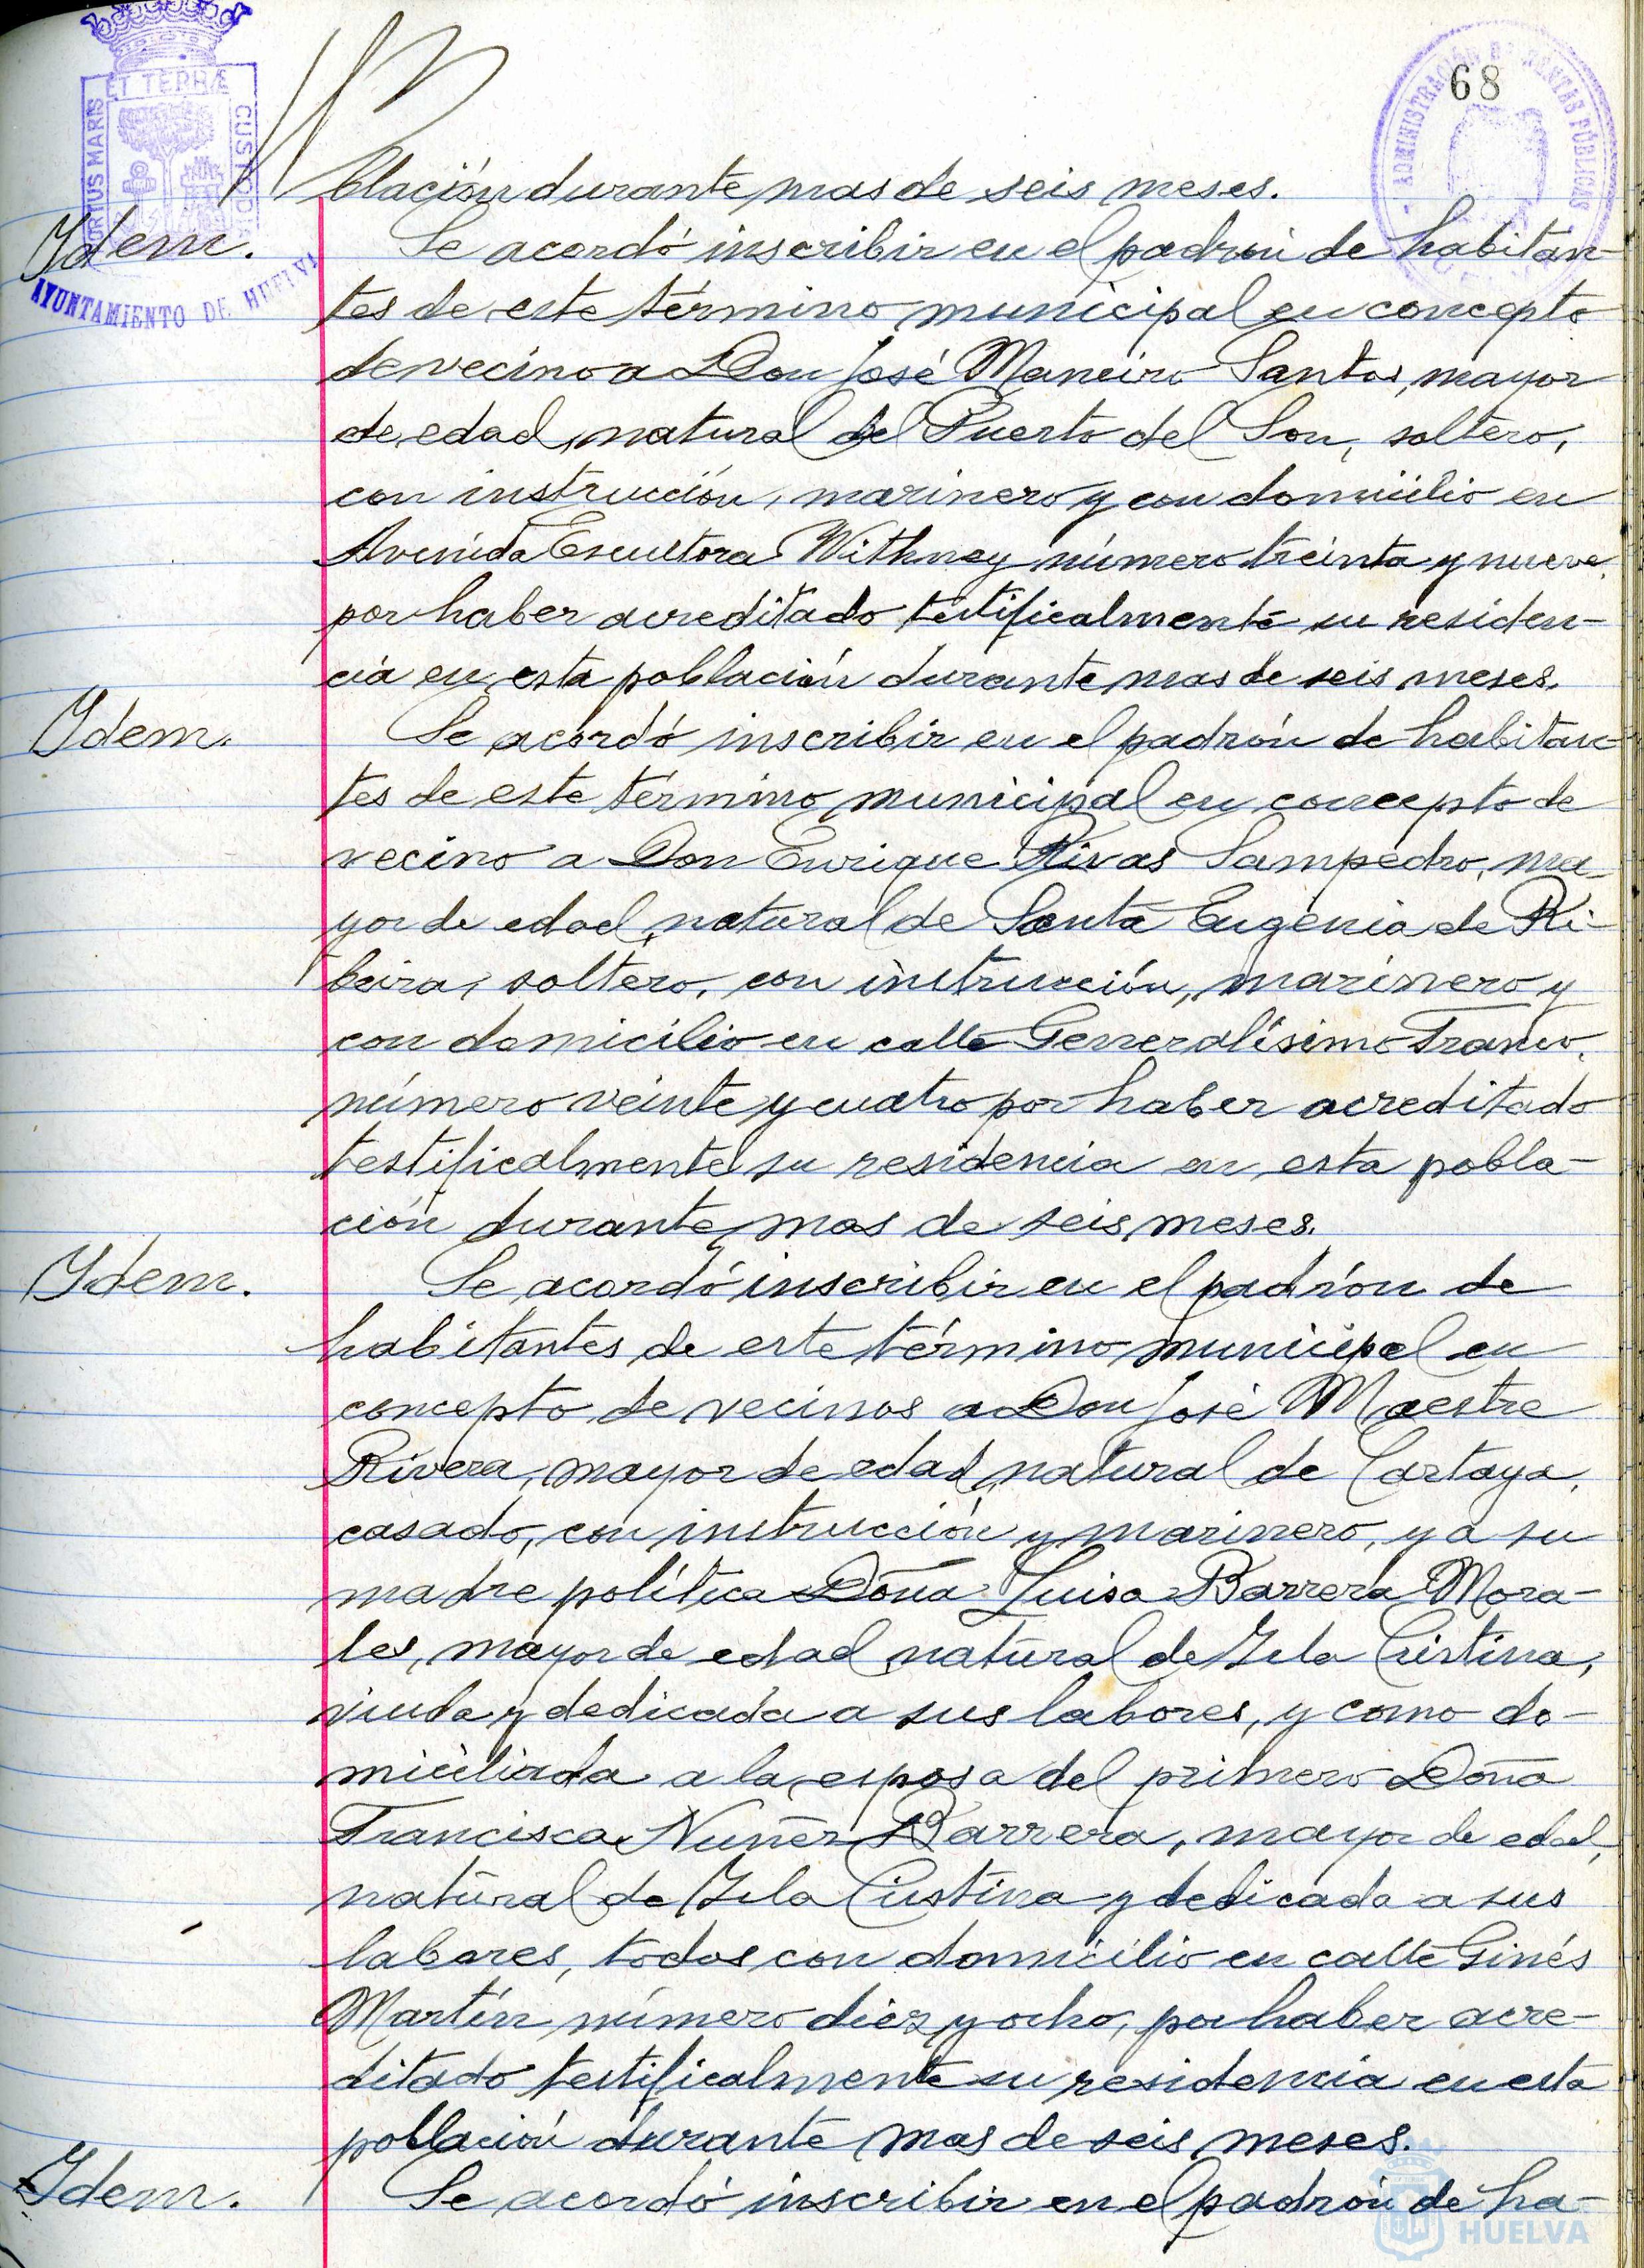 68
PORTUS MARIS
ET TERRÆ
CUSTODIA
AYUNTAMIENTO DE HUELVA
ADMINISTRACIÓN DE RENTAS PÚBLICAS
blación durante mas de seis meses.
Ydem.
Se acordó inscribir en el padrón de habitan-
tes de este término municipal en concepto
de vecino a Don José Maneiro Santos, mayor
de edad, natural del Puerto del Son, soltero,
con instrucción, marinero y con domicilio en
Avenida Escultora Withney número treinta y nueve,
por haber acreditado testificalmente su residen-
cia en esta población durante mas de seis meses.
Ydem.
Se acordó inscribir en el padrón de habitan-
tes de este término municipal en concepto de
vecino a Don Enrique Rivas Sampedro, ma-
yor de edad, natural de Santa Eugenia de Ri-
beira, soltero, con instrucción, marinero y
con domicilio en calle Generalísimo Franco,
número veinte y cuatro por haber acreditado
testificalmente su residencia en esta pobla-
ción durante mas de seis meses.
Ydem.
Se acordó inscribir en el padrón de
habitantes de este término municipal en
concepto de vecinos a Don José Maestre
Rivera, mayor de edad, natural de Cartaya,
casado, con instrucción y marinero, y a su
madre política Doña Luisa Barrera Mora-
les, mayor de edad, natural de Ysla Cristina,
viuda y dedicada a sus labores, y como do-
miciliada a la esposa del primero Doña
Francisca Nuñez Barrera, mayor de edad,
natural de Ysla Cristina y dedicada a sus
labores, todos con domicilio en calle Ginés
Martín número diez y ocho, por haber acre-
ditado testificalmente su residencia en esta
población durante mas de seis meses.
Ydem.
Se acordó inscribir en el padrón de ha-
HUELVA